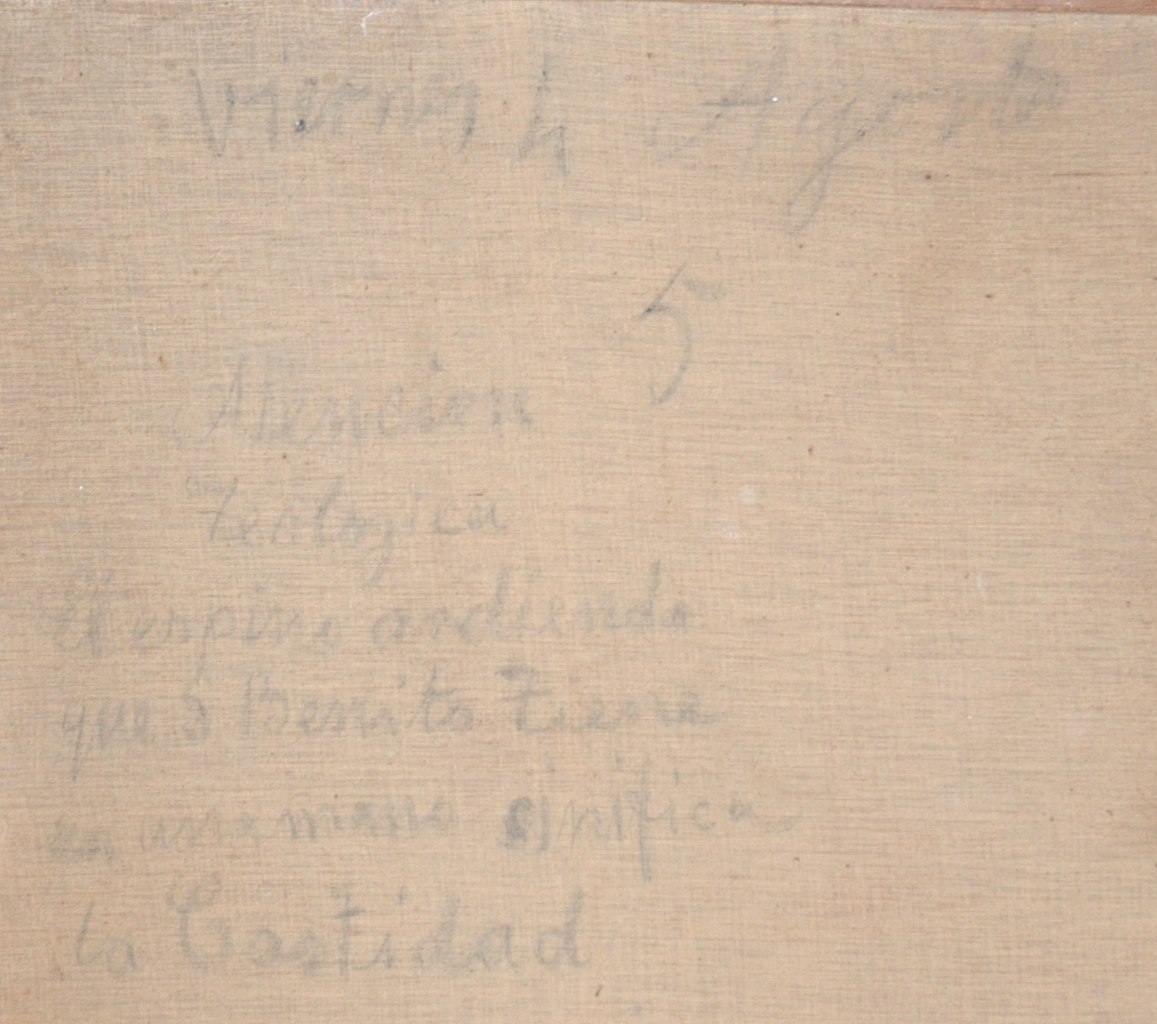 Viernes 4 Agosto
5
Atencion
Teologica
El espino ardiendo
que S Benito Tiene
en una mano sinifica
la Castidad